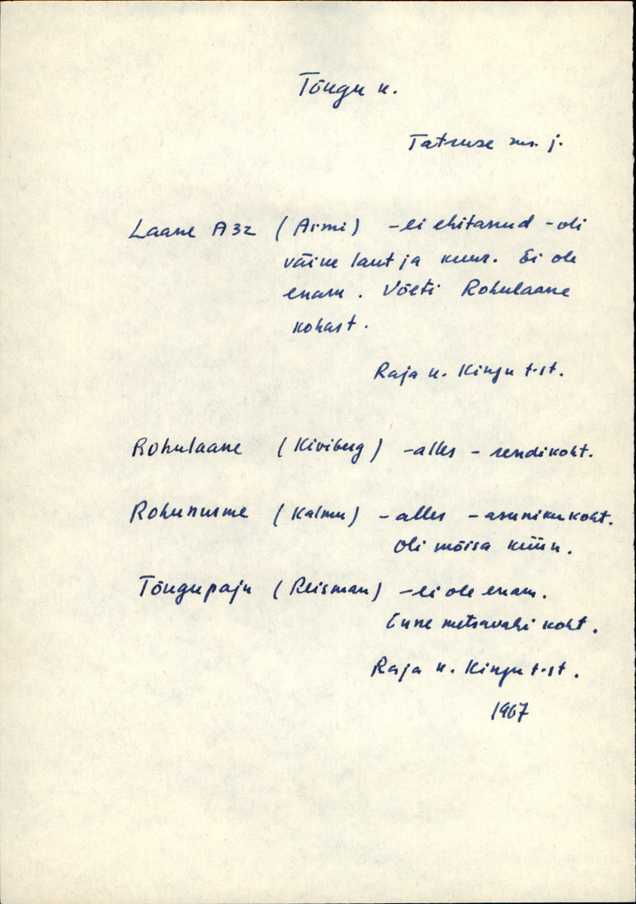 Tõugu k.
Tatruse mv. j.
Laane A32 (Armi) – ei ehitanud – oli
väike laut ja kuur. Ei ole
enam. Võeti Rohulaane
kohast.
Raja k. Kingu t-st.
Rohulaane (Kiviberg) – alles – rendikoht.
Rohunurme (Kalmu) – alles – asunikukoht.
Oli mõisa küün.
Tõugupaju (Reisman) – ei ole enam.
Enne metsavahi koht.
Raja k. Kingu t-st.
1967